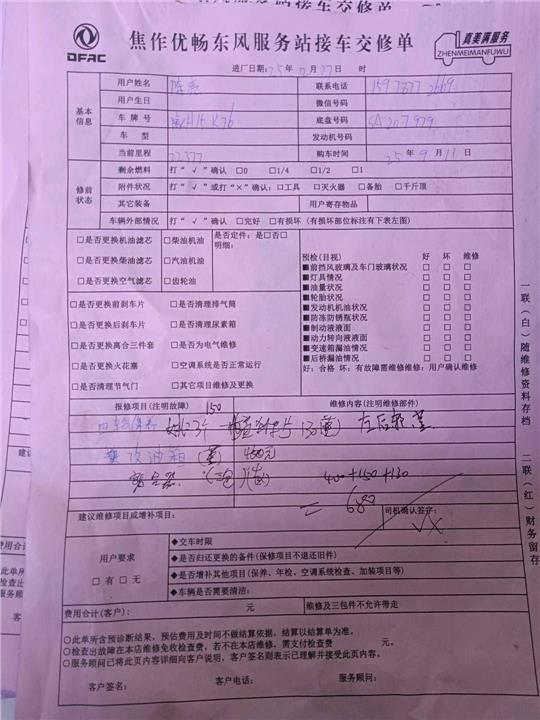 DFAC
焦作优畅东风服务站接车交修单
真美满服务
ZHENMEIMANFUWU
进厂日期:25年 月27日 时
基本信息
用户姓名
联系电话
用户生日
微信号码
车牌号
底盘号码
SA207979
车型
发动机号码
当前里程
22377
购车时间
25年9月11日
修前状态
剩余燃料
打“√”确认 □0 □1/4 □1/2 □1
附件状况
打“√”或打“×”确认:□工具 □灭火器 □备胎 □千斤顶
其它装备
用户寄存物品
车辆外部情况
打“√”确认 □完好 □有损坏(有损坏部位标注有下表左图)
□是否更换机油滤芯 □柴油机油
□是否更换柴油滤芯 □汽油机油
□是否更换空气滤芯 □齿轮油
是否定件:是□否□
明细:
□是否更换前刹车片 □是否清理排气筒
□是否更换后刹车片 □是否清理尿素箱
□是否更换离合三件套 □是否为电气维修
□是否更换火花塞 □空调系统是否正常运行
□是否清理节气门 □其它项目维修及更换
预检(目视) 好 坏 维修
■前挡风玻璃及车门玻璃状况 □ □ □
■灯具情况 □ □ □
■油量状况 □ □ □
■轮胎状况 □ □ □
■发动机机油状况 □ □ □
■防冻防锈瓶状况 □ □ □
■制动液液面 □ □ □
■动力转向液液面 □ □ □
■变速箱漏油情况 □ □ □
■后桥漏油情况 □ □ □
好:合格 坏:有故障需维修维修:用户确认维修
报修项目(注明故障)
150
维修内容(注明维修部件)
左后轮
400+150+130
= 680
建议维修项目或增补项目:
司机确认签字:
用户要求
□有 □无
◆交车时限
◆是否归还更换的备件(保修项目不退还旧件)
◆是否增补其他项目(保养、年检、空调系统检查、加装项目等)
◆车辆是否需要清洁:
费用合计(客户): 元
维修及三包件不允许带走
○此单所含预诊断结果,预估费用及时间不做结算依据,结算以结算单为准。
○检查出故障在本店维修免收检查费,若不在本店维修,需支付检查费 元。
○服务顾问已将此页内容详细向客户说明,客户签名则表示已理解并接受此页内容。
客户签名: 客户电话: 服务顾问:
一联(白)随维修资料存档
二联(红)财务留存